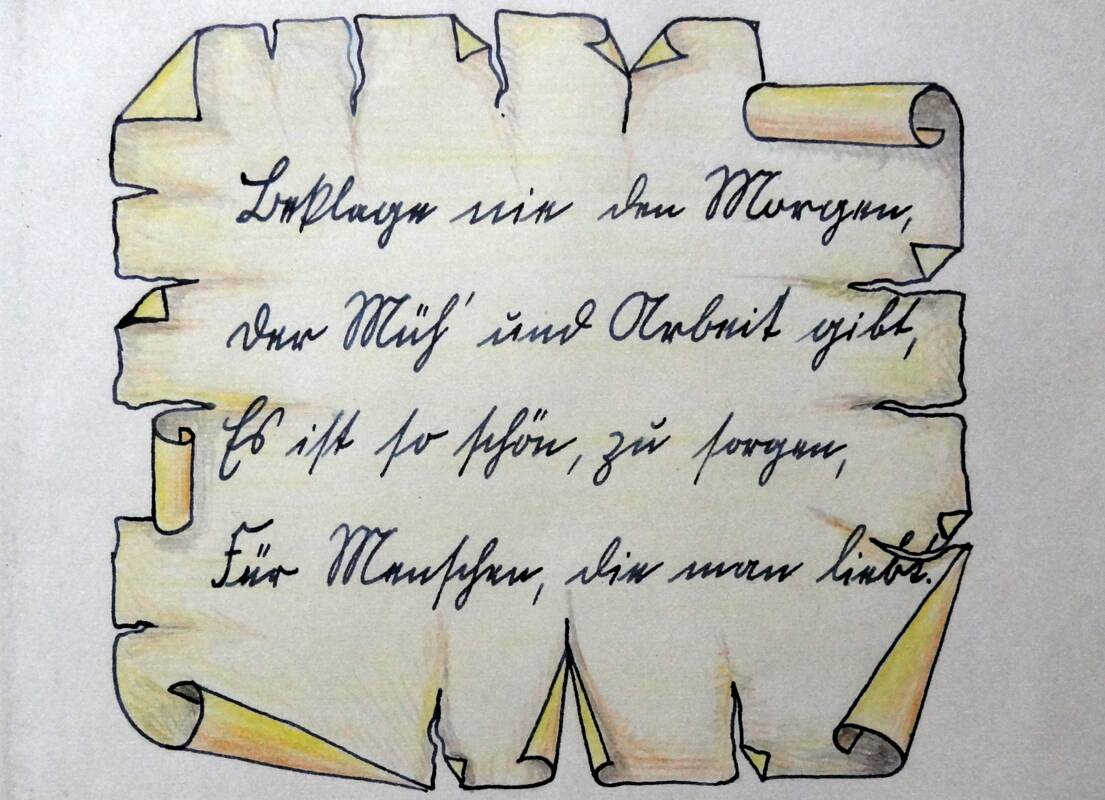 Beklage nie den Morgen,
der Müh' und Arbeit gibt,
Es ist so schön, zu sorgen,
Für Menschen, die man liebt.